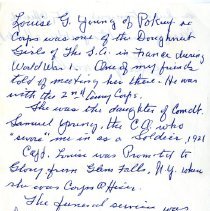 Louise G. Young of Pokey's
Corps was one of the Doughnut
Girls of The S.A. in France during
World War 1. One of my friends
told of meeting her there. He was
with the 2nd Army Corps.
She was the daughter of Comdt.
Samuel Young, the C.O. who
"swore" me in as a Soldier, 1921
Capt. Louise was Promoted to
Glory from Glens Falls, N.Y. where
she was Corps Officer.
The funeral service was